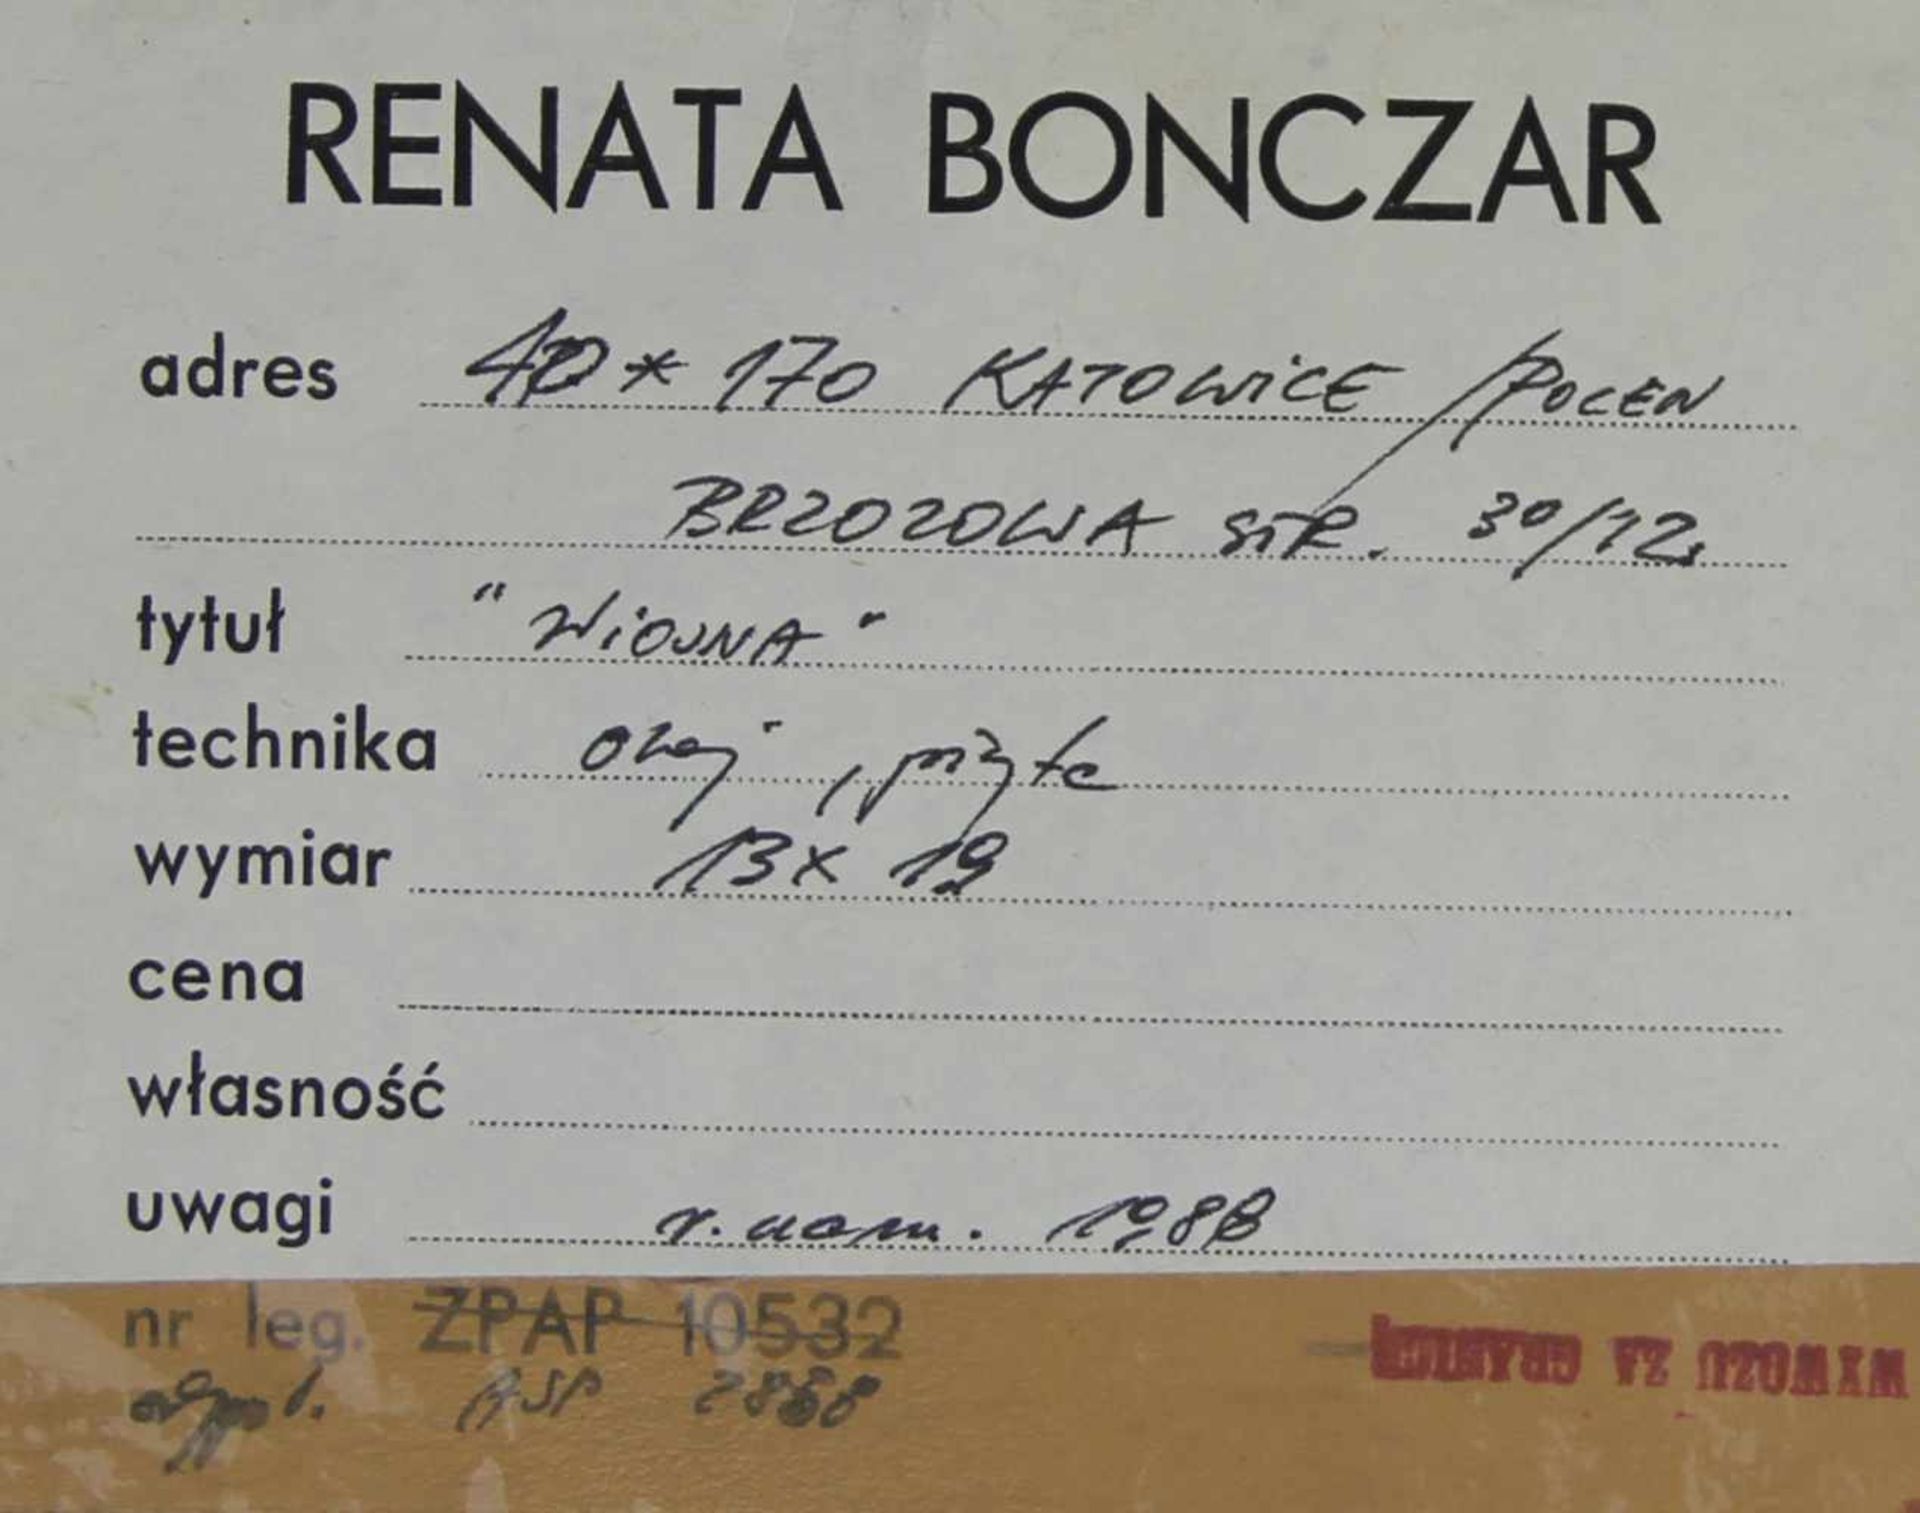 RENATA BONCZAR
adres 40*170 KATOWICE / POLEN
BRZOZOWA STR. 30/12
tytuł "WIOSNA"
technika olej, płyta
wymiar 13 x 19
cena
własność
uwagi r. nom. 1988
nr leg. ZPAP 10532
ASP 2868
WYWOZU ZA GRANICĘ